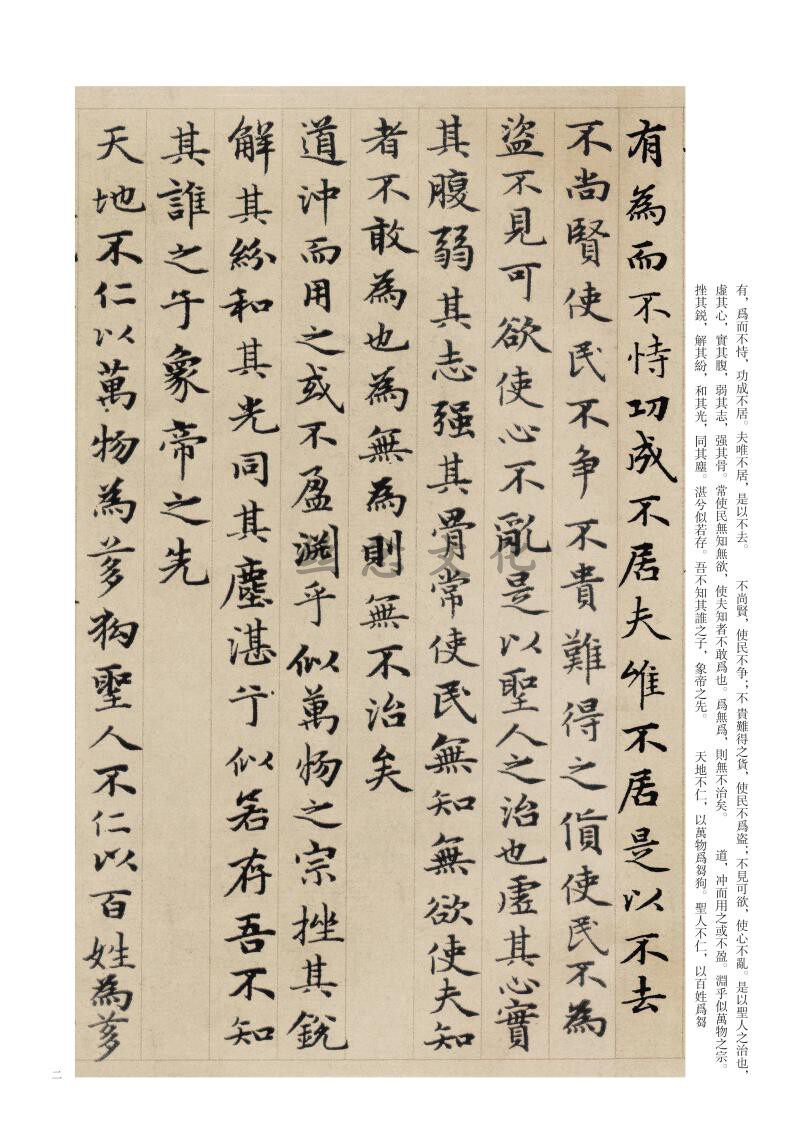 有，爲而不恃，功成不居。夫唯不居，是以不去。　不尚賢，使民不争；不貴難得之貨，使民不爲盗；不見可欲，使心不亂。是以聖人之治也，
虚其心，實其腹，弱其志，强其骨。常使民無知無欲，使夫知者不敢爲也。爲無爲，則無不治矣。　道，冲而用之或不盈。淵乎似萬物之宗。
挫其鋭，解其紛，和其光，同其塵。湛兮似若存。吾不知其誰之子，象帝之先。　天地不仁，以萬物爲芻狗。聖人不仁，以百姓爲芻
有為而不恃功成不居夫唯不居是以不去
不尚賢使民不争不貴難得之貨使民不為
盗不見可欲使心不亂是以聖人之治也虚其心實
其腹弱其志强其骨常使民無知無欲使夫知
者不敢為也為無為則無不治矣
道沖而用之或不盈淵乎似萬物之宗挫其鋭
解其紛和其光同其塵湛兮似若存吾不知
其誰之子象帝之先
天地不仁以萬物為芻狗聖人不仁以百姓為芻
二